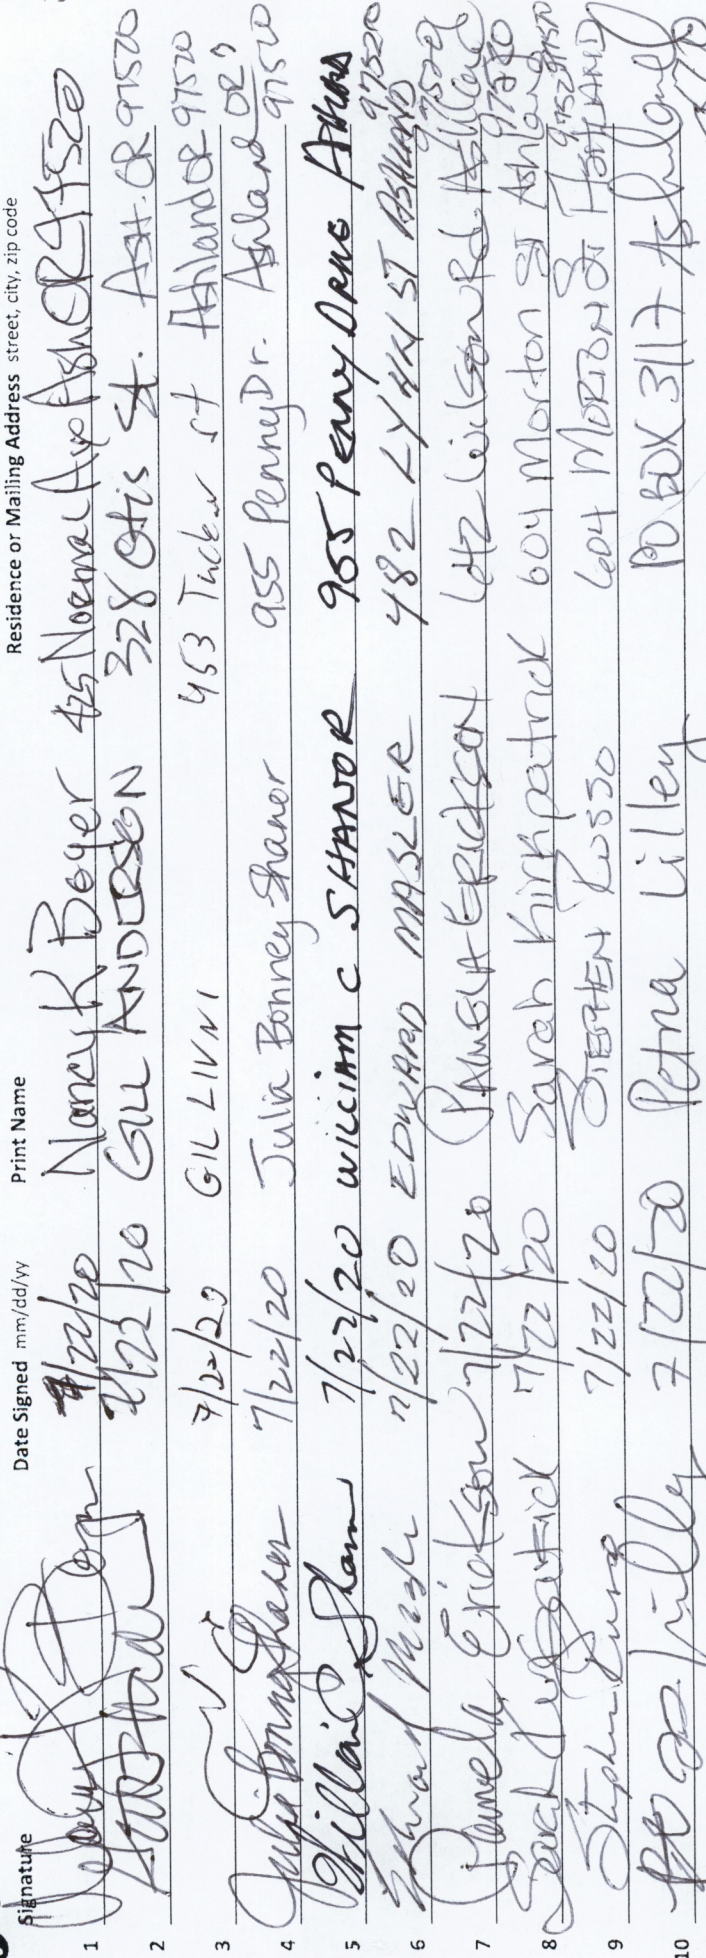 Signature Date Signed mm/dd/yy Print Name Residence or Mailing Address street, city, zip code
1 7/22/20 Nancy K Boyer 425 Normal Ave Ash OR 97520
2 7/22/20 GILL ANDERSON 328 Otis St. Ash. OR 97520
3 7/22/20 GIL LIVNI 453 Tucker st Ashland OR 97520
4 Julia Bonney Shanor 7/22/20 Julia Bonney Shanor 955 Penny Dr. Ashland OR 97520
5 William C Shanor 7/22/20 WILLIAM C SHANOR 955 PENNY DRIVE
6 7/22/20 EDWARD MASLER 482 LYNN ST ASHLAND 97520
7 Pamela Erickson 7/22/20 PAMELA ERICKSON 642 Wilson Rd Ashland
8 Sarah Kirkpatrick 7/22/20 Sarah Kirkpatrick 604 Morton St Ashland 97520
9 Stephen Russo 7/22/20 STEPHEN RUSSO 604 MORTON St ASHLAND 97520
10 Lilley 7/22/20 Petra Lilley PO BOX 3117 Ashland